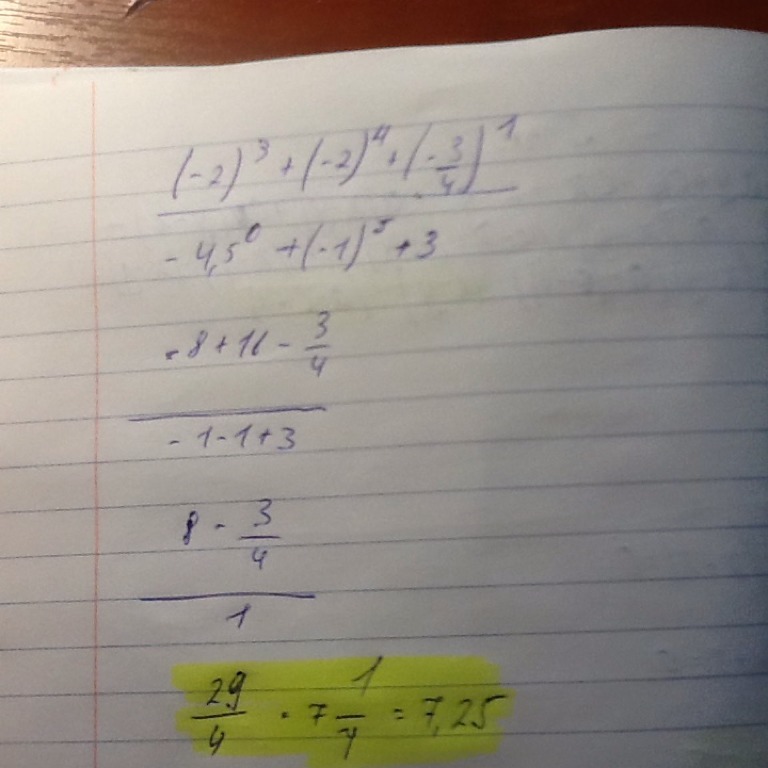 (-2)³ + (-2)⁴ + (-3/4)¹
- 4,5⁰ + (-1)⁵ + 3
-8 + 16 - 3/4
- 1 - 1 + 3
8 - 3/4
1
29/4 = 7 1/4 = 7,25